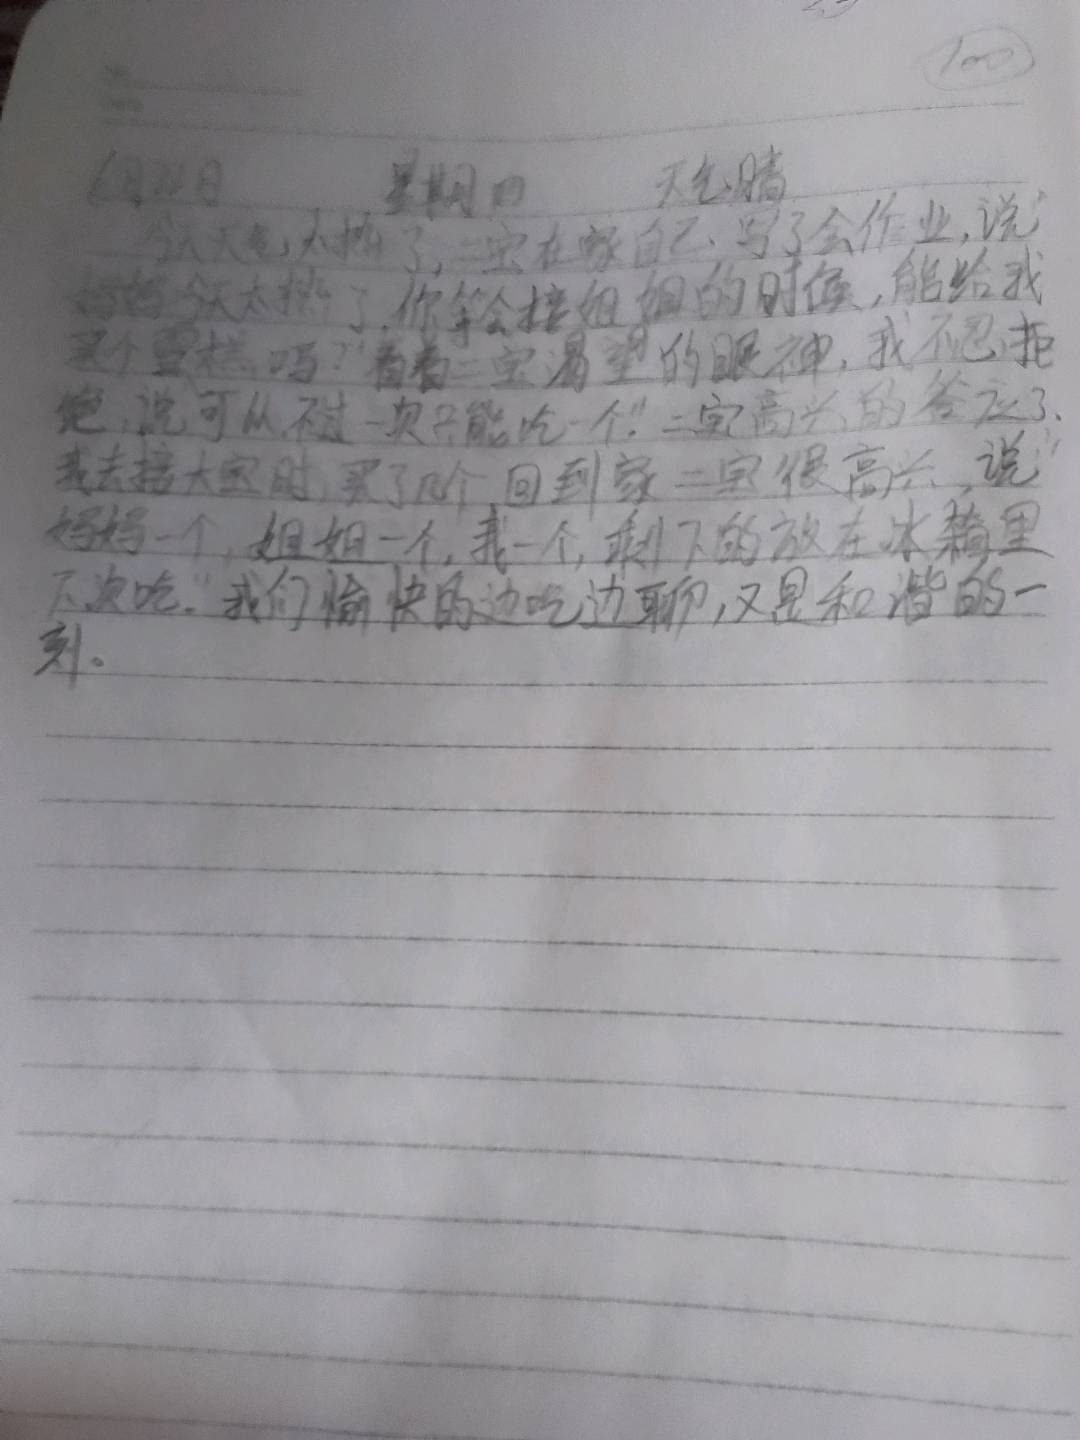 100
6月 日 星期四 天气晴
今天天气太热了,二宝在家自己写了会作业,说"
妈妈今天太热了,你等会接姐姐的时候,能给我
买个雪糕吗?"看着二宝渴望的眼神,我不忍拒
绝,说可以,不过一次只能吃一个!"二宝高兴的答应了,
我去接大宝时,买了几个,回到家二宝很高兴,说"
妈妈一个,姐姐一个,我一个,剩下的放在冰箱里
下次吃."我们愉快的边吃边聊,又是和谐的一
刻。